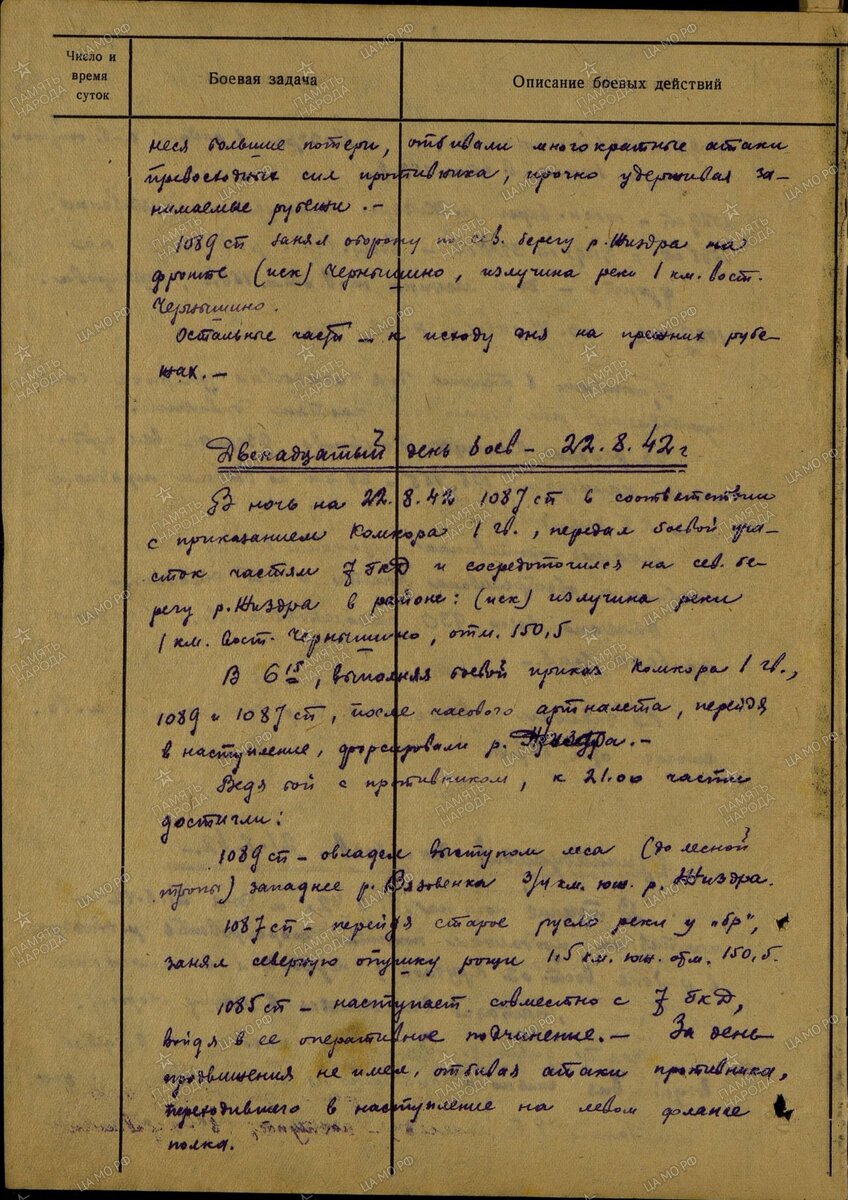 Число и
время
суток
Боевая задача
Описание боевых действий
неся большие потери, отбивали многократные атаки
превосходных сил противника, прочно удерживая за-
нимаемые рубежи. -
1089 сп занял оборону по сев. берегу р. Жиздра на
фронте (иск) Чернышино, излучина реки 1 км. вост.
Чернышино.
Остальные части - к исходу дня на прежних рубе-
жах. -
Двенадцатый день боев - 22.8.42 г
В ночь на 22.8.42 1087 сп в соответствии
с приказанием Комкора 1 гв., передал боевой уча-
сток частям 7 ГкД и сосредоточился на сев. бе-
регу р. Жиздра в районе: (иск) излучина реки
1 км. вост. Чернышино, отм. 150,5
В 6 15, выполняя боевой приказ Комкора 1 гв.,
1089 и 1087 сп, после часового артналета, перейдя
в наступление, форсировали р. Жиздра. -
Ведя бой с противником, к 21.00 части
достигли:
1089 сп - овладел выступом леса (до лесной
тропы) западнее р. Вязовенка 3/4 км. юж. р. Жиздра.
1087 сп - перейдя старое русло реки у „бр",
занял северную опушку рощи 1,5 км. юж. отм. 150,5.
1085 сп - наступает совместно с 7 ГкД,
войдя в ее оперативное подчинение. - За день
продвижения не имел, отбивая атаки противника,
переходившего в наступление на левом фланге
полка.
ПАМЯТЬ НАРОДА
ЦАМО.РФ